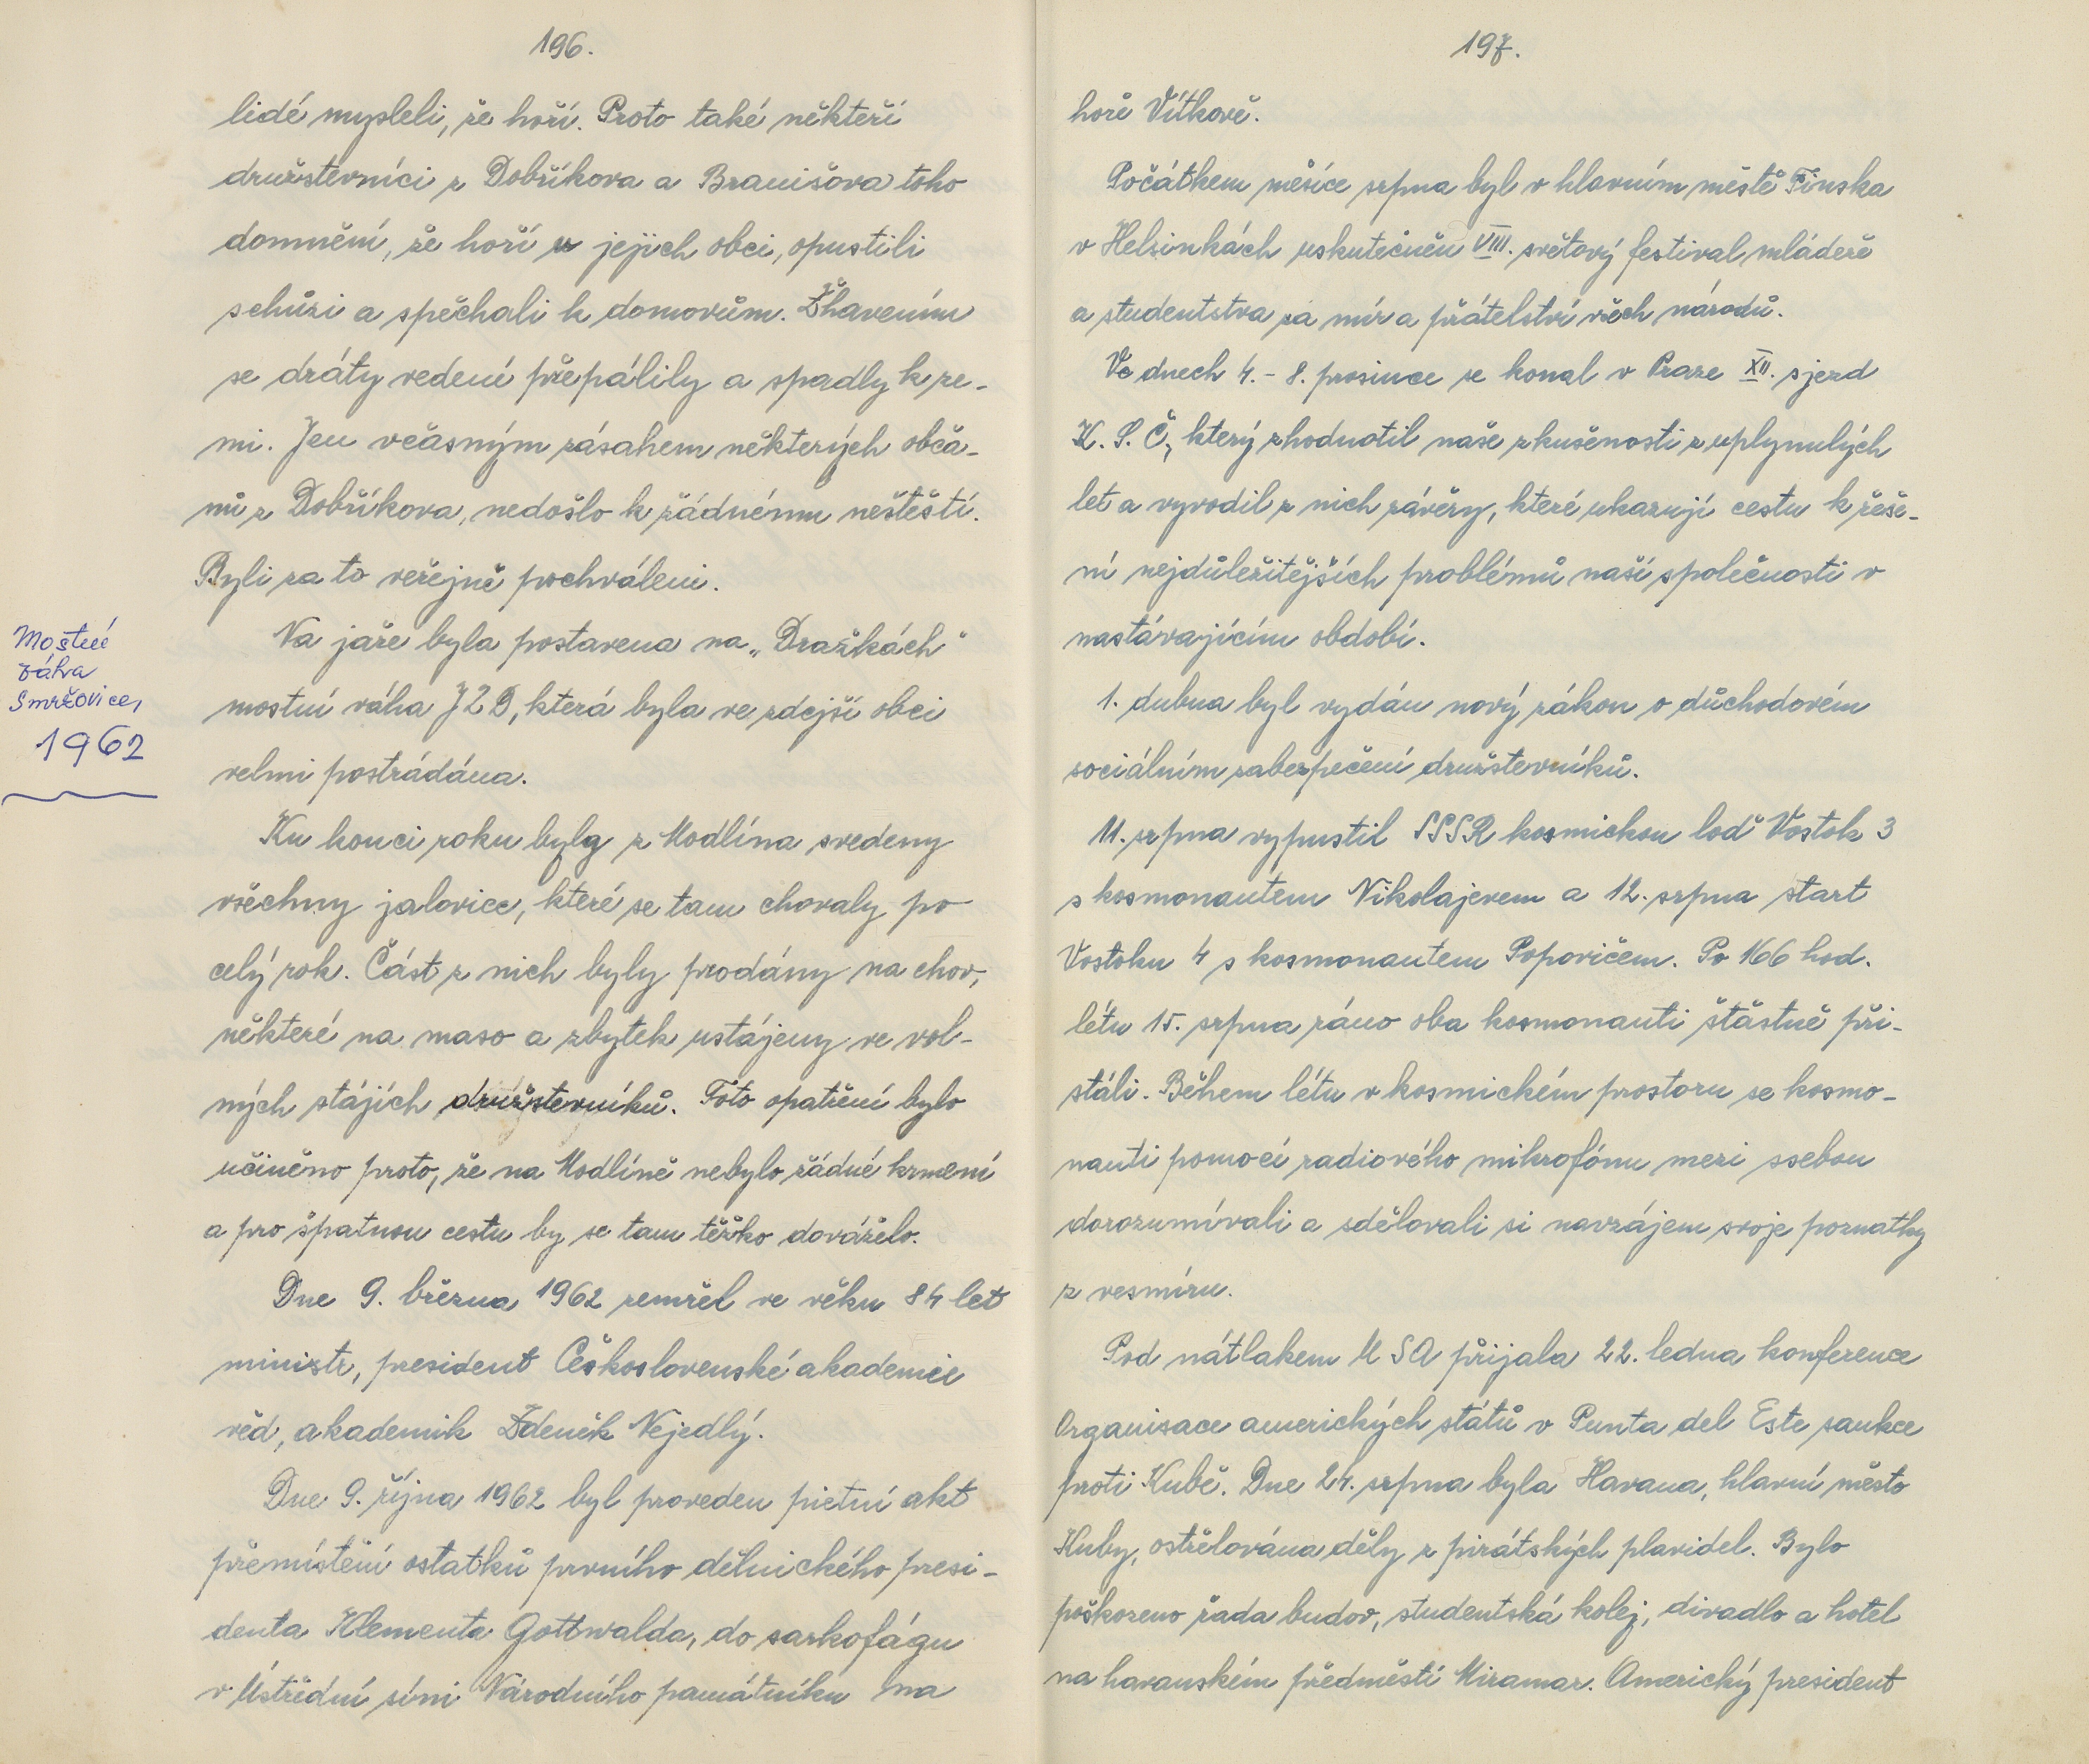 196.
lidé mysleli, že hoří. Proto také někteří
družstevníci z Dobříkova a Branišova toho
domnění, že hoří u jejich obci, opustili
schůzi a spěchali k domovům. Žhavením
se dráty vedení přepálily a spadly k ze-
mi. Jen včasným zásahem některých obča-
nů z Dobříkova, nedošlo k žádnému neštěstí.
Byli za to veřejně pochváleni.
Na jaře byla postavena na „Dražkách"
mostní váha JZD, která byla ve zdejší obci
velmi postrádána.
Ku konci roku byly z Modlína svedeny
všechny jalovice, které se tam chovaly po
celý rok. Část z nich byly prodány na chov,
některé na maso a zbytek ustájeny ve vol-
ných stájích družstevníků. Toto opatření bylo
učiněno proto, že na Modlíně nebylo žádné krmení
a pro špatnou cestu by se tam těžko dováželo.
Dne 9. března 1962 zemřel ve věku 84 let
ministr, president Československé akademie
věd, akademik Zdeněk Nejedlý.
Dne 9. října 1962 byl proveden pietní akt
přemístění ostatků prvního dělnického presi-
denta Klementa Gottwalda, do sarkofágu
v Ústřední síni Národního památníku na
Mostní
váha
Smržovice,
1962
197.
hoře Vítkově.
Počátkem měsíce srpna byl v hlavním městě Finska
v Helsinkách uskutečněn VIII. světový festival mládeže
a studentstva za mír a přátelství všech národů.
Ve dnech 4. - 8. prosince se konal v Praze XII. sjezd
K. S. Č, který zhodnotil naše zkušenosti z uplynulých
let a vyvodil z nich závěry, které ukazují cestu k řeše-
ní nejdůležitějších problémů naší společnosti v
nastávajícím období.
1. dubna byl vydán nový zákon o důchodovém
sociálním zabezpečení družstevníků.
11. srpna vypustil SSSR kosmickou loď Vostok 3
s kosmonautem Nikolajevem a 12. srpna start
Vostoku 4 s kosmonautem Popovičem. Po 166 hod.
létu 15. srpna ráno oba kosmonauti šťastně při-
stáli. Během létu v kosmickém prostoru se kosmo-
nauti pomocí radiového mikrofónu mezi ssebou
dorozumívali a sdělovali si navzájem svoje poznatky
z vesmíru.
Pod nátlakem USA přijala 22. ledna konference
Organisace amerických států v Punta del Este sankce
proti Kubě. Dne 24. srpna byla Havana, hlavní město
Kuby, ostřelována děly z pirátských plavidel. Bylo
poškozeno řada budov, studentská kolej, divadlo a hotel
na havanském předměstí Miramar. Americký president